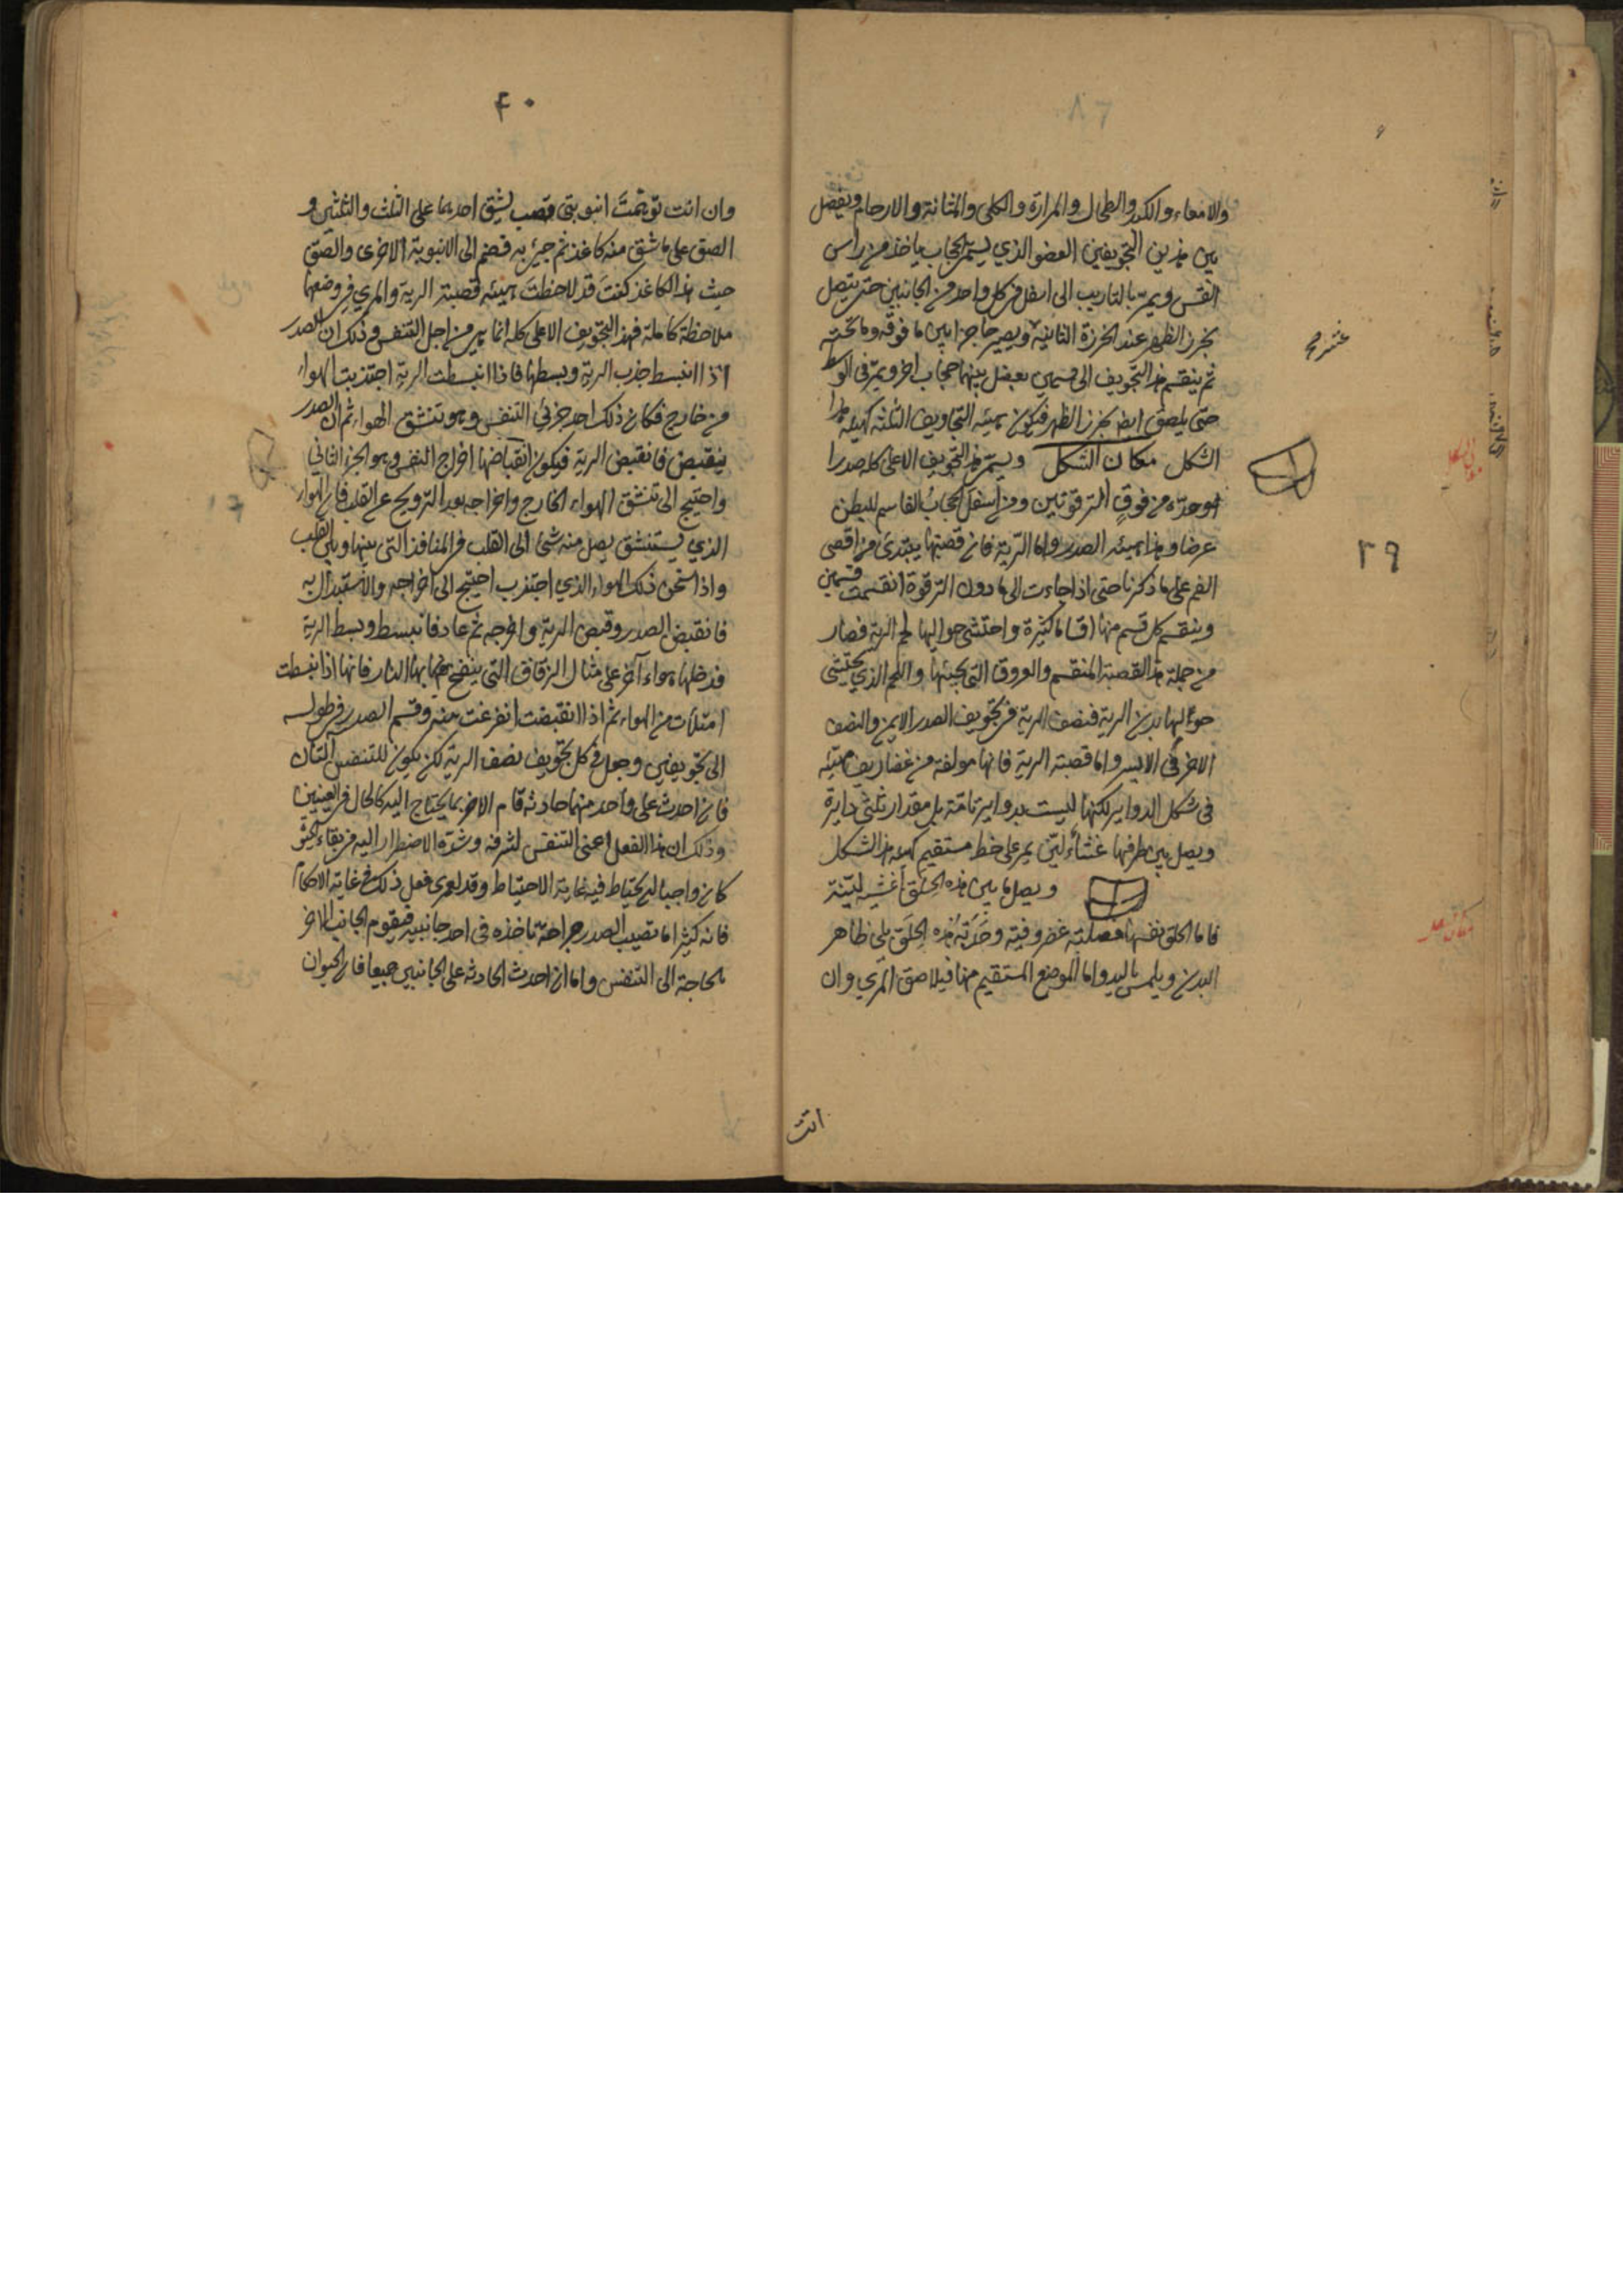 ٨٦
والامعاء والكبد والطحال والمرارة والكلى والمثانة والارحام ويفصل
بين هذين التجويفين العضو الذي يسمى الحجاب ياخذ من راس
القس ويمر بالتاريب الى اسفل فى كل واحد من الجانبين حتى يتصل
بخرز الظهر عند الخرزة الثانية ويصير حاجزا بين ما فوقه وما تحته
عشر صح
ثم ينقسم هذا التجويف الى قسمين يفصل بينهما حجاب اخر ويمر فى الوسط
حتى يلصق ايضا بخرز الظهر فيكون هيئه التجاويف الثلثه كهيئه هذا
الشكل مكان الشكل ويسمى هذا التجويف الاعلى كله صدرا
وحده من فوق الترقوتين ومن اسفل الحجاب القاسم للبطن
عرضا وهذا هيئه الصدر واما الرية فان قصبتها يبتدئ من اقصى
٣٩
الفم على ما ذكرنا حتى اذا جاءت الى ما دون الترقوة انقسمت قسمين
وينقسم كل قسم منها اقساما كثيرة واحتشى حواليها لحم الرية فصار
من جملة هذا القصبة المنقسم والعروق التى تحيتها واللحم الذي يحتشى
حواليها بدن الرية فنصف الرية فى تجويف الصدر الايمن والنصف
الاخر فى الايسر واما قصبة الرية فانها مولفة من غضاريف هيئه
فى شكل الدواير لكنها ليست بدواير تامة بل مقدار ثلثي دايرة
ويصل بين طرفها غشاء لين يمر على خط مستقيم كهيئه هذا الشكل
ويصل ما بين هذه الحلق اغشيه لينة
فاما الحلق نفسها فصلبة غضروفية وحدبة هذه الحلق يلى ظاهر
البدن ويلمس باليد واما الموضع المستقيم منها فيلاصق المري وان
انت
٤٠
وان انت توهمت انبوبتى قصب يشق احدهما على الثلث والثلثين و
الصق على ما شق منه كاغذ ثم جيئ به فضم الى الانبوبة الاخرى والصق
حيث هذا الكاغذ كنت قد لاحظت هيئه قصبة الرية والمري فى وضعها
ملاحظة كاملة فهذا التجويف الاعلى كله انما هي من اجل التنفس وذلك ان الصدر
اذا انبسط جذب الرية وبسطها فاذا انبسطت الرية اجتذبت الهواء
من خارج فكان ذلك احد جزئي التنفس وهو تنشق الهواء ثم ان الصدر
ينقبض فانقبض الرية فيكون انقباضها اخراج النفس وهو الجزء الثاني
واحتيج الى تنشق الهواء الخارج واخراجه بعد الترويح عن القلب فان الهواء
الذي يستنشق يصل منه شئ الى القلب فى المنافذ التى بينها وبين القلب
واذا سخن ذلك الهواء الذي اجتذب احتيج الى اخراجه والاستبدال به
فانقبض الصدر وقبض الرية واخرجه ثم عاد فانبسط وبسط الرية
فدخلها هواء آخر على مثال الزقاق التى ينفخ بها النار فانها اذا انبسطت
امتلأت من الهواء ثم اذا انقبضت انفرغت منه وقسم الصدر فى طوله
الى تجويفين وجعل فى كل تجويف نصف الرية لكن يكون للتنفس آلتان
فان احدث على واحد منهما حادثه قام الاخر بما يحتاج اليه كالحال فى العينين
وذلك ان هذا الفعل اعنى التنفس لشرفه وشدة الاضطرار اليه فى بقاء الحيوة
كان واجبا ان يحتاط فيه غاية الاحتياط وقد لعمري فعل ذلك فى غاية الاحكام
فانه كثيرا ما تصيب الصدر جراحة نافذه فى احد جانبيه فيقوم الجانب الاخر
بالحاجة الى التنفس واما ان احدث الحادثه على الجانبين جميعا فان الحيوان